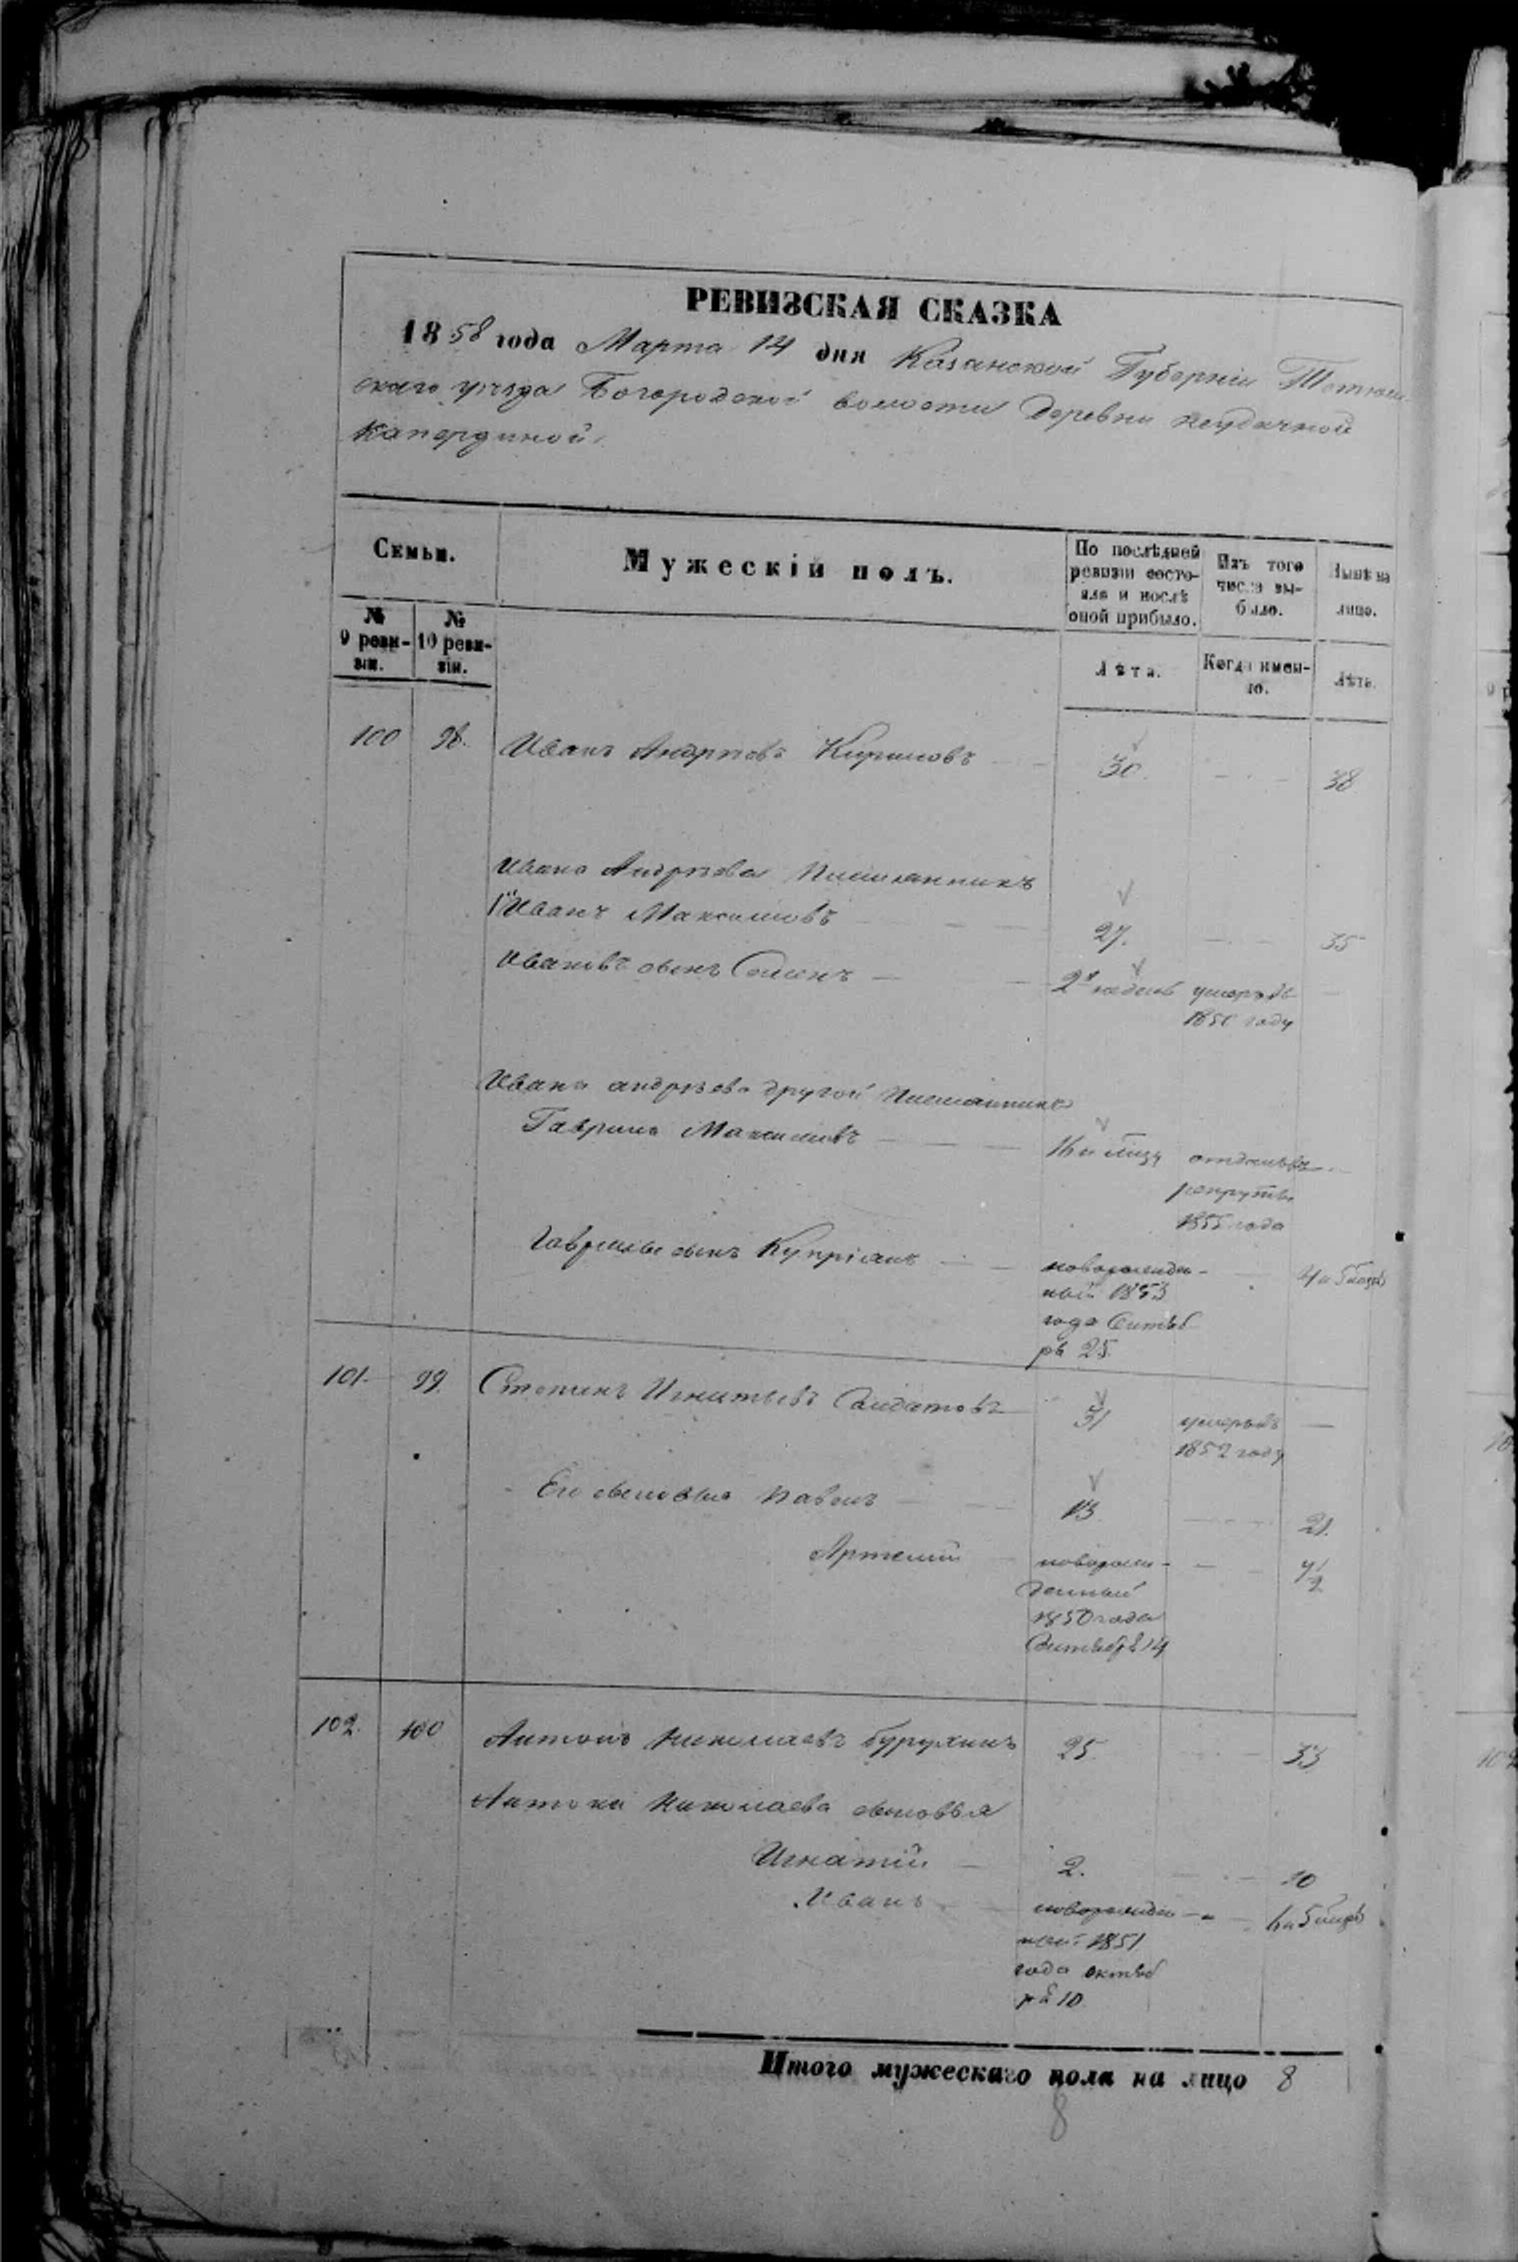 РЕВИЗСКАЯ СКАЗКА
1858 года Марта 14 дня Казанской Губерніи Тетюш-
скаго уѣзда Богородской волости деревни Неудачной
Семьи.
Мужескій полъ.
По послѣдней ревизіи состо- яло и послѣ оной прибыло.
Изъ того числа вы- было.
Нынѣ на лицо.
№ 9 реви- зіи.
№ 10 реви- зіи.
Лѣта.
Когда имен- но.
Лѣта.
100 98. Иванъ Андреевъ 30. 38
Ивана Андрѣева племянникъ
1й Иванъ Максимовъ 27. 35
Ивановъ сынъ Семенъ 2х недель умеръ въ
1850 году
Ивана андрѣева другой племянникъ
Гаврила Максимовъ отданъ въ
рекруты
1855 года
Гаврилы сынъ Купріянъ новорожден- 4 и 5 мѣсяц
ный 1853
года Сентяб
ря 25.
101. 99. Степанъ Игнатьевъ Солдатовъ 51 умеръ въ
1852 году
Его сыновья Павелъ 13 21.
Артемій новорож- 7 1/2
денный
1850 года
Сентября 14
102. 100 Антонъ Николаевъ Бурухинъ 25. 33
Антона Николаева сыновья
Игнатій 2. 10
Иванъ новорожден- 6 и 5 мѣсяц
ный 1851
года октяб
ря 10
Итого мужескаго пола на лицо 8
8